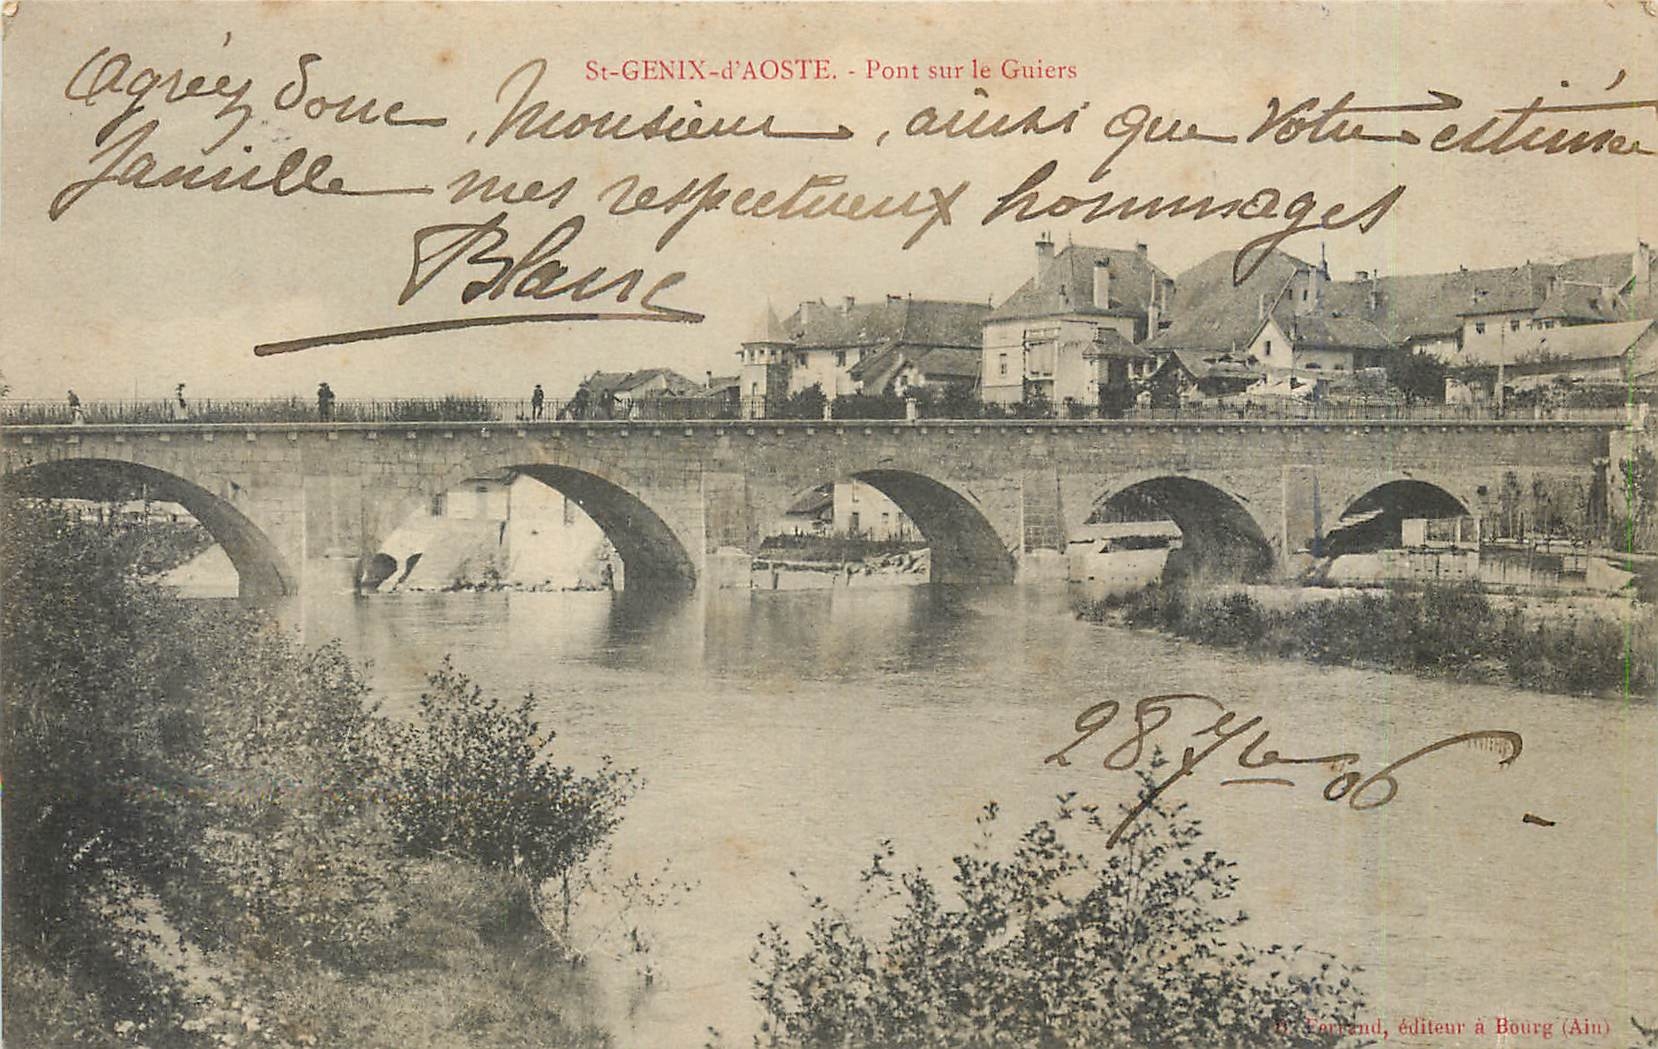 St-GENIX-d'AOSTE. - Pont sur le Guiers
Agréez donc, Monsieur, ainsi que votre estimée
famille mes respectueux hommages
28 7bre 06
Ferrand, éditeur à Bourg (Ain)